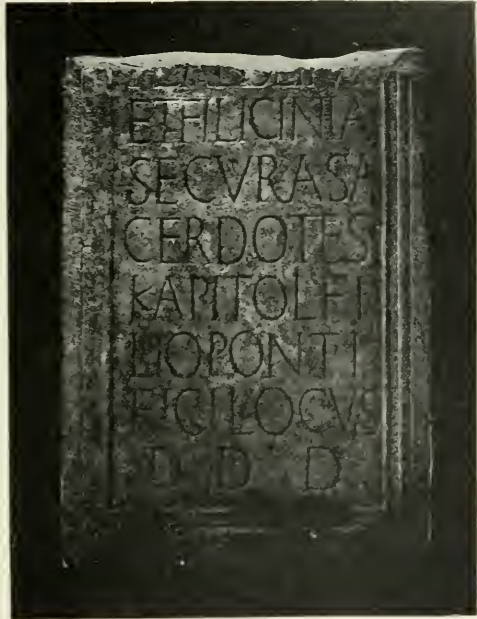 ET HILICINIA
SECVRASA
CERDOTES
KAPITOLFI
LIOPONTI
FICI LOCVS
D D D